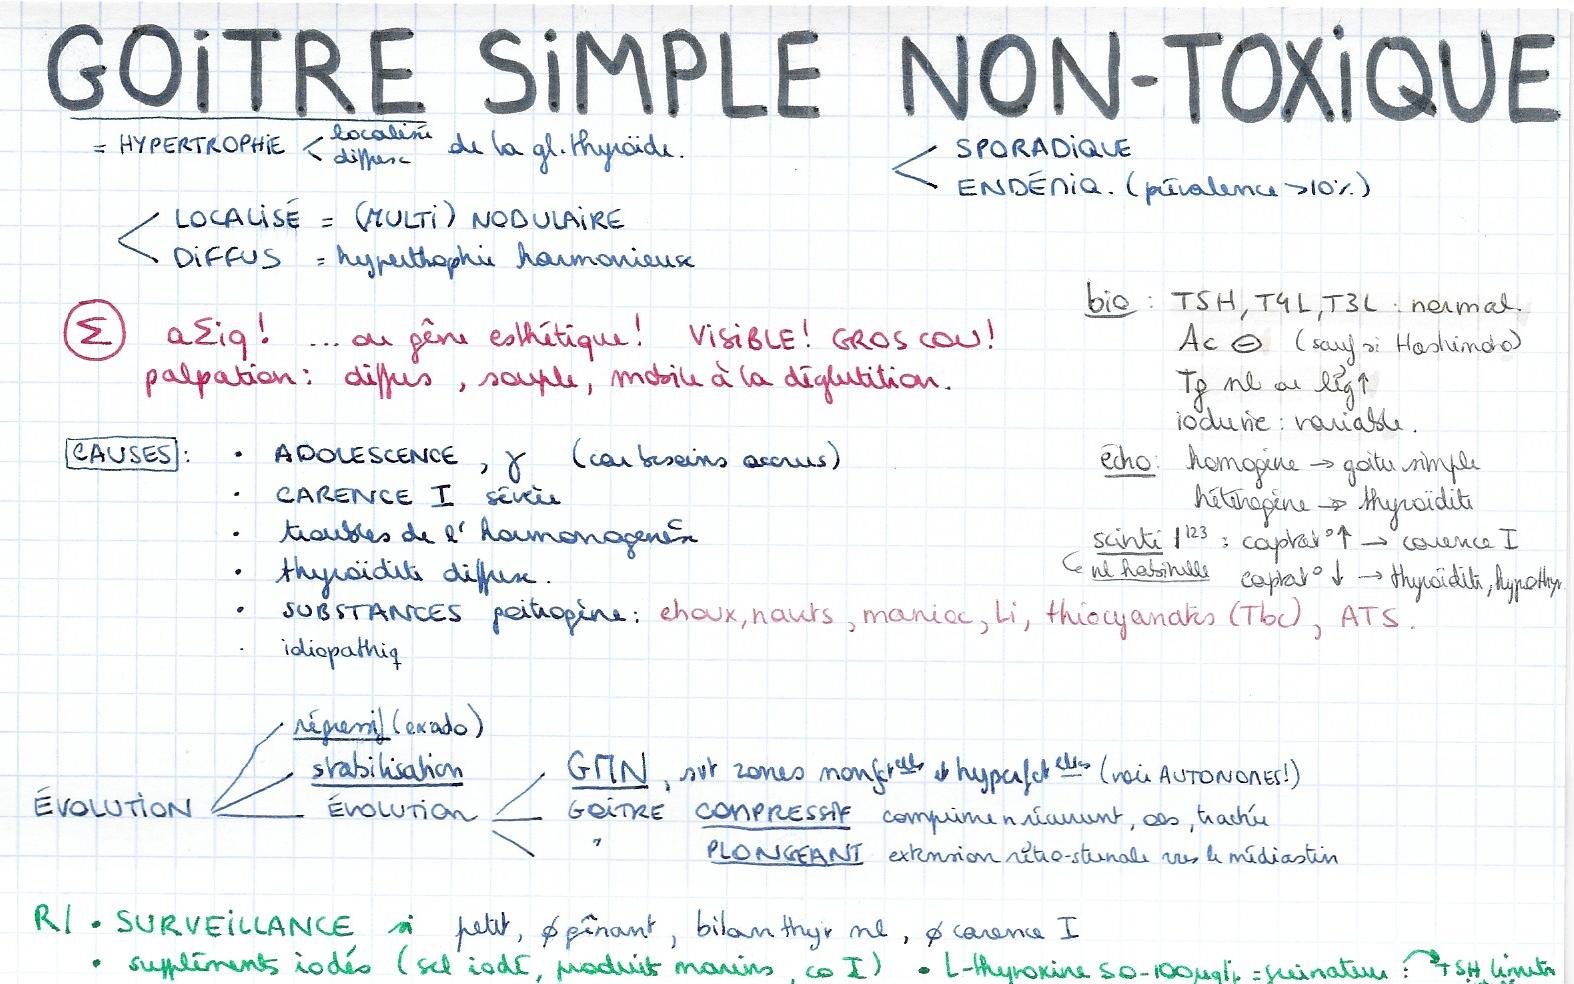 GOiTRE SiMPLE NON-TOXiQUE
= HYPERTROPHiE < localisée diffuse de la gl. thyroïde.
< SPORADiQUE
ENDÉMiQ. (prévalence >10%)
< LOCALiSÉ = (MULTi) NODULAiRE
DiFFUS = hypertrophie harmonieuse
Σ aΣiq! ... ou gêne esthétique! ViSiBLE! GROS COU!
palpation: diffus, souple, mobile à la déglutition.
bio: TSH, T4L, T3L: normal.
Ac ⊖ (sauf si Hashimoto)
Tg nl ou lég↑
iodurie: variable.
écho: homogène → goitre simple
hétérogène → thyroïdite
scinti I¹²³: captat° ↑ → carence I
nl habituelle captat° ↓ → thyroïdite, hypothyr.
CAUSES:
• ADOLESCENCE, γ (car besoins accrus)
• CARENCE I sévère
• troubles de l'hormonogenèse
• thyroïdite diffuse.
• SUBSTANCES goitrogène: choux, navets, manioc, Li, thiocyanates (Tbc), ATS.
• idiopathiq
ÉVOLUTiON
régressif (ex ado)
stabilisation
ÉVOLUTiON
GMN, svt zones nonfctelles + hyperfctelles (voir AUTONOMES!)
GOÎTRE COMPRESSiF comprime n récurrent, œs, trachée
" PLONGEANT extension rétro-sternale vers le médiastin
R/ • SURVEiLLANCE si petit, ∅ gênant, bilan thyr nl, ∅ carence I
• suppléments iodés (sel iodé, produits marins, co I) • L-thyroxine 50-100µg/j = freinateur: TSH